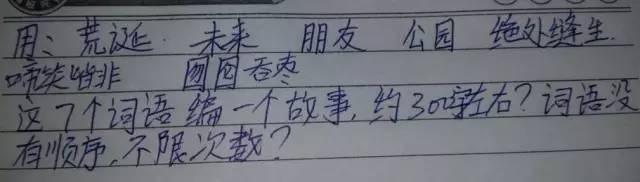 用：荒诞 未来 朋友 公园 绝处缝生
啼笑皆非 囫囵吞枣
这7个词语 编一个故事，约300字左右？词语没
有顺序，不限次数？